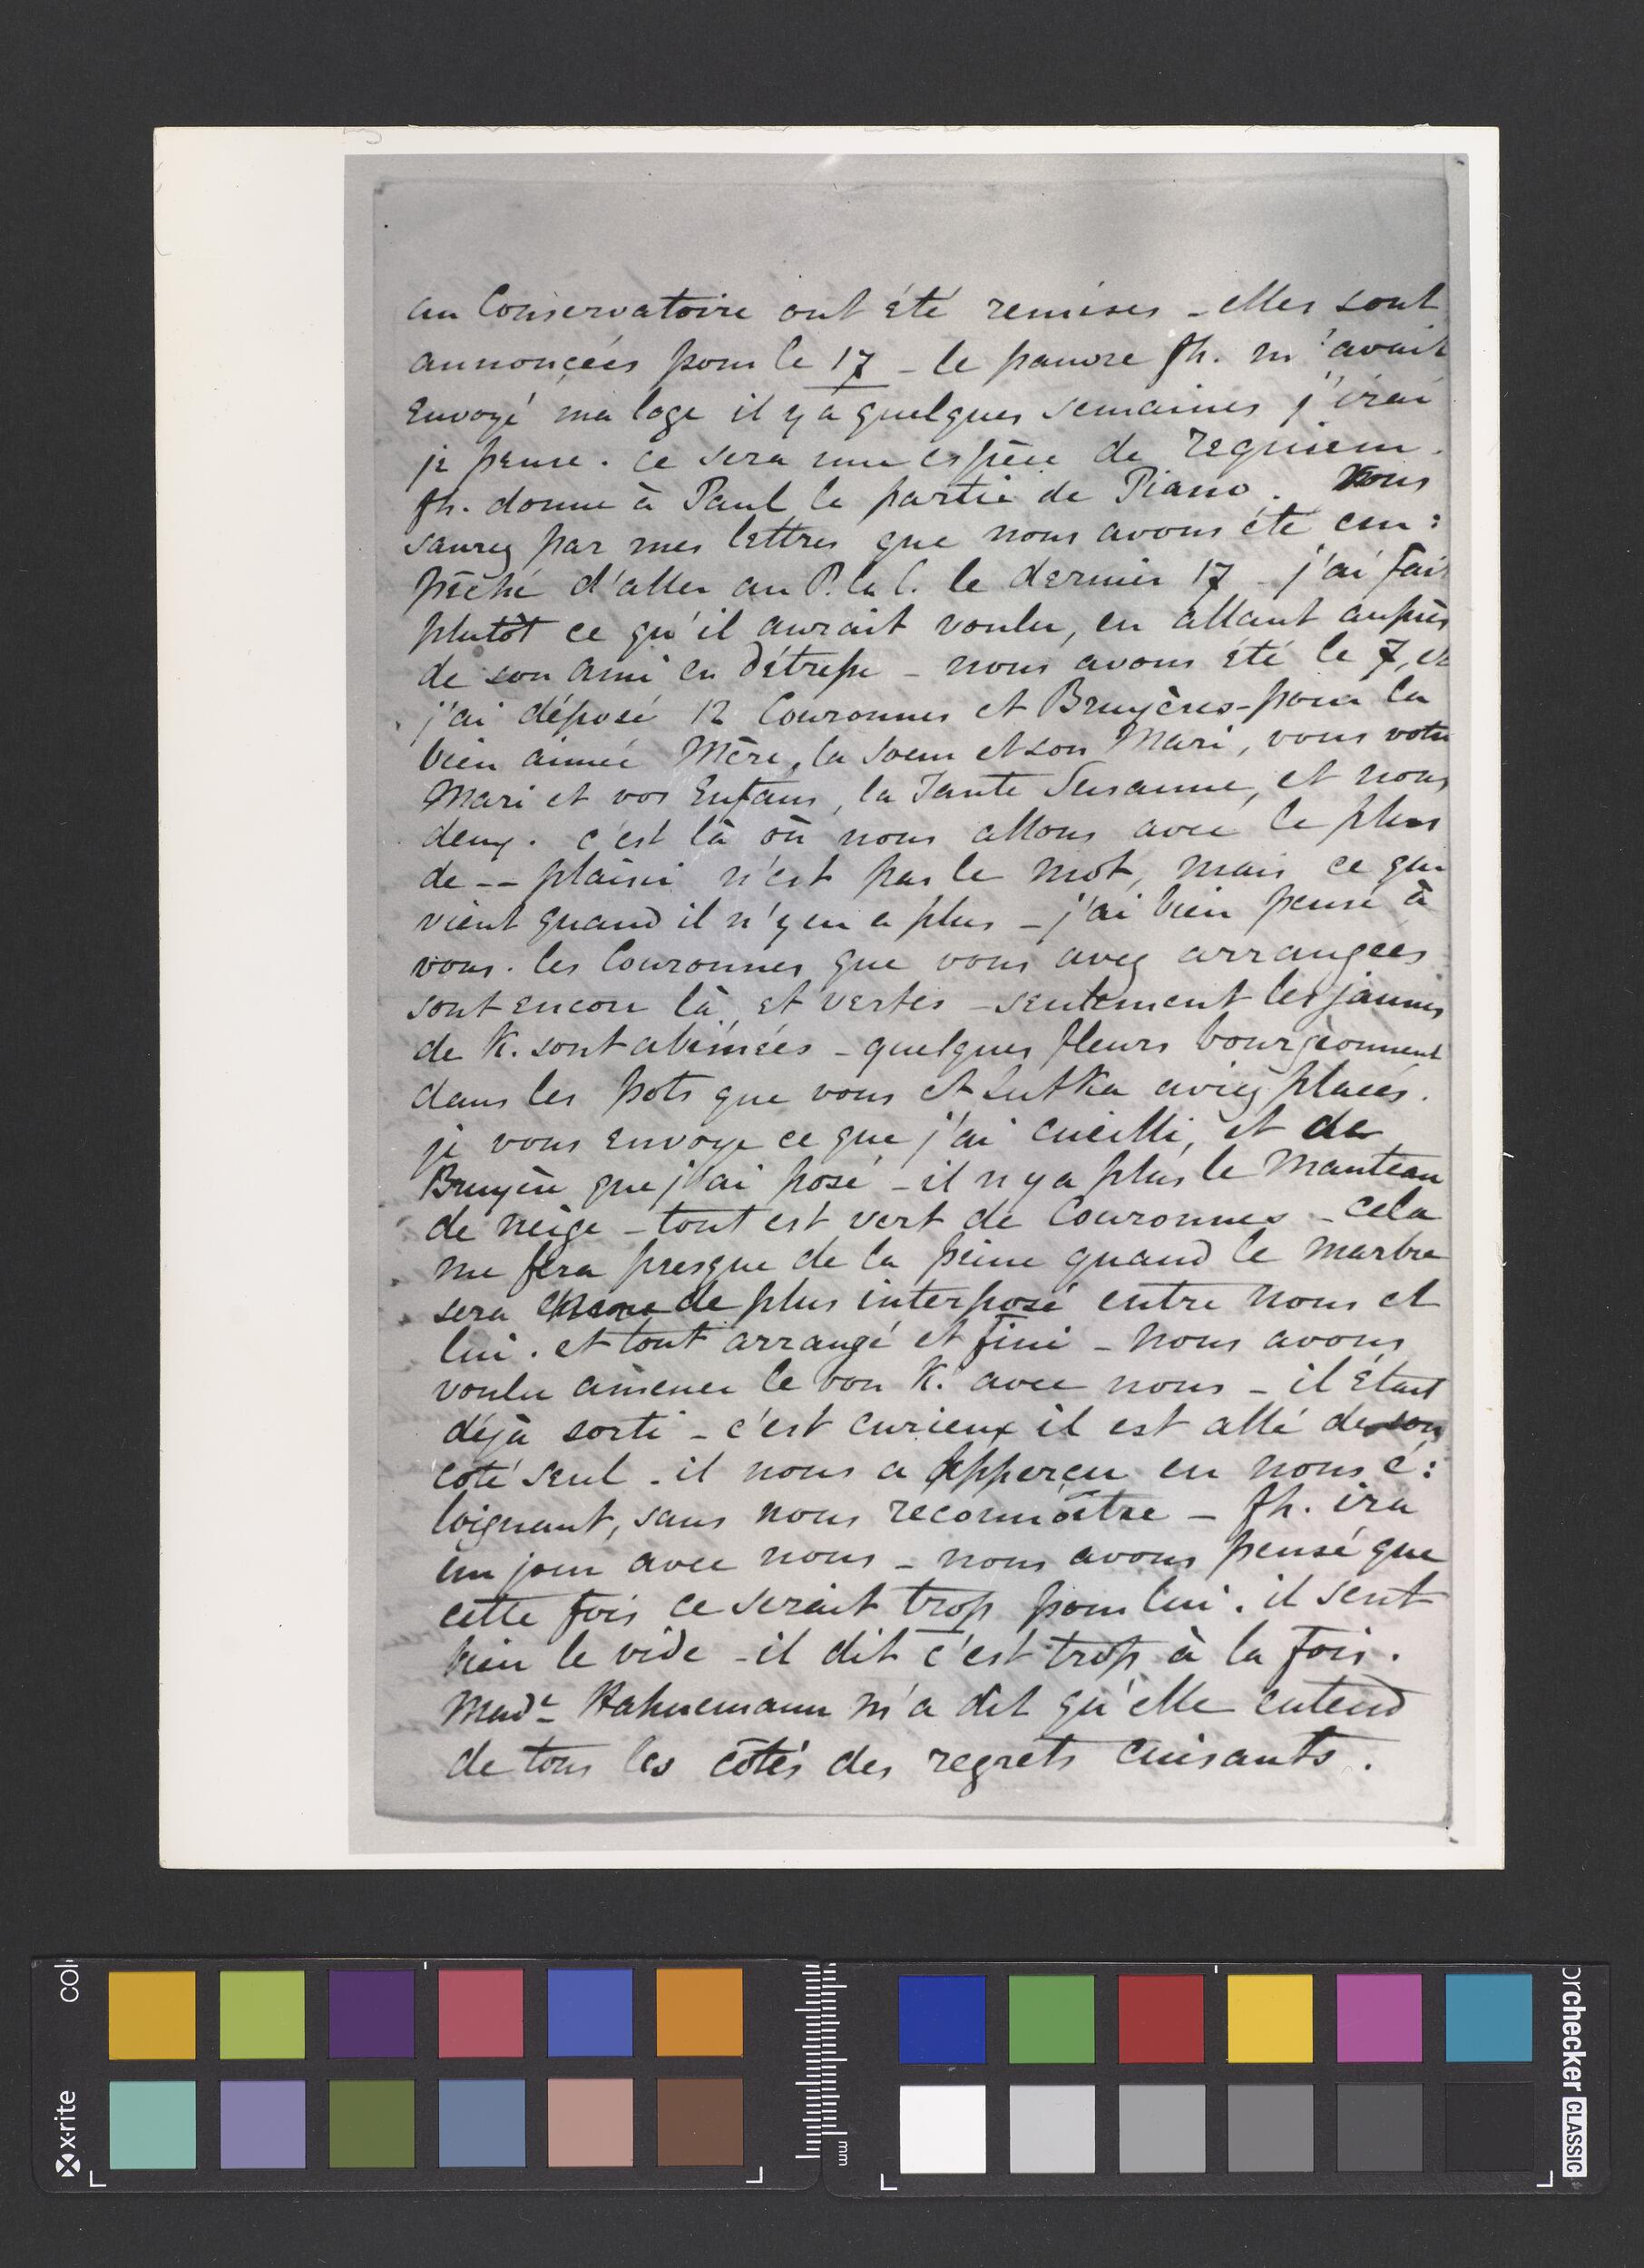 au Conservatoire ont été remises - elles sont
annoncées pour le 17 - le pauvre fh. m'avait
envoyé ma loge il y a quelques semaines j'irai
je pense. ce sera une espèce de requiem.
fh. donne à Paul la partie de Piano. Vous
saurez par mes lettres que nous avons été em:
pêché d'aller au P. la C. le dernier 17 - j'ai fait
plutôt ce qu'il aurait voulu, en allant auprès
de son ami en détresse - nous avons été le 7, et
j'ai déposé 12 Couronnes et Bruyères - pour la
bien aimée Mère, la Soeur et son Mari, vous votre
Mari et vos Enfans, la Tante Susanne, et nous
deux. c'est là où nous allons avec le plus
de -- plaisir n'est pas le mot, mais ce qui
vient quand il n'y en a plus - j'ai bien pensé à
vous. les Couronnes que vous avez arrangées
sont encore là et vertes - seulement les jaunes
de K. sont abimées - quelques fleurs bourgeonnent
dans les pots que vous et Lutka aviez placés.
je vous envoye ce que j'ai cueilli, et de
Bruyère que j'ai posé - il n'y a plus le Manteau
de neige - tout est vert de Couronnes - cela
me fera presque de la peine quand le marbre
sera de plus interposé entre nous et
lui. et tout arrangé et fini - nous avons
voulu amener le bon K. avec nous - il était
déjà sorti - c'est curieux il est allé de son
coté seul. il nous a apperçu en nous é:
loignant, sans nous reconnoître - fh. ira
un jour avec nous - nous avons pensé que
cette fois ce serait trop pour lui. il sent
bien le vide - il dit c'est trop à la fois.
Made Hahnemann m'a dit qu'elle entend
de tous les côtés des regrets cuisants.
x-rite
col
mm
orchecker CLASSIC